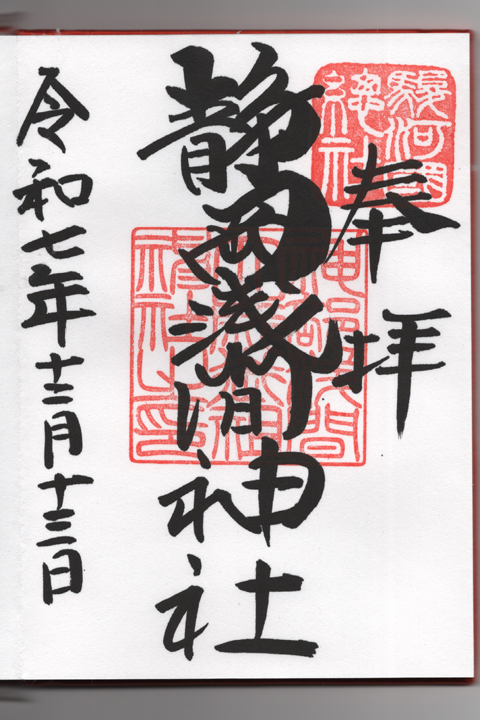 奉拝
駿河國
總社
静岡浅間神社
令和七年十二月十三日